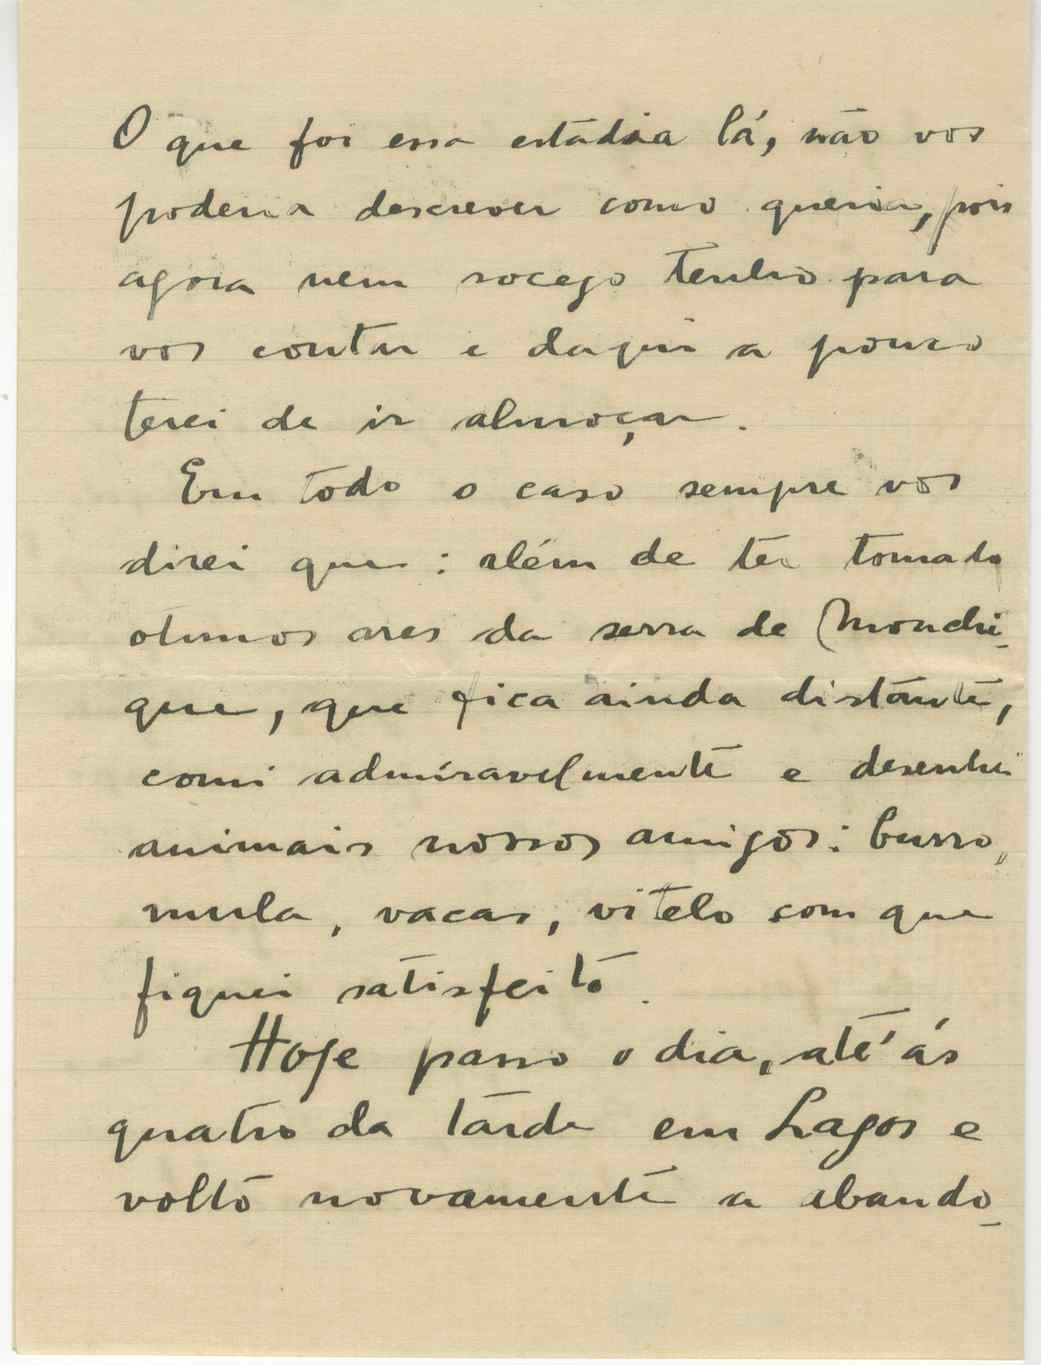 O que foi essa estadia lá, não vos
poderia descrever como queria, pois
agora nem socego tenho para
vos contar e daqui a pouco
terei de ir almoçar.
Em todo o caso sempre vos
direi que: além de ter tomado
otimos ares da serra de Monchi-
que, que fica ainda distante,
comi admiravelmente e desenhei
animais nossos amigos: burro,
mula, vacas, vitelo com que
fiquei satisfeito.
Hoje passo o dia, até ás
quatro da tarde em Lagos e
volto novamente a abando-